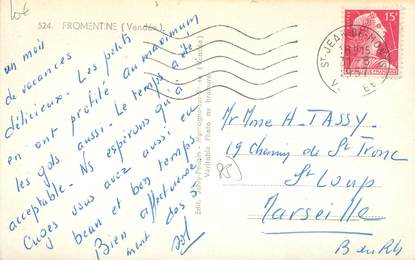 10€
524. FROMENTINE (Vendée)
un mois
de vacances
délicieux. Les petits
en ont profité au maximum
les gds aussi. Le temps a été
acceptable. Ns espérons qu'à
Cuges vous avez aussi eu
beau et bon temps
Bien affectueuse
ment à vs
Véritable Photo au bromure
ST-JEAN-DE-MONTS
15F
Mr Mme H. TASSY
19 Chemin de St Tronc
St Loup
Marseille
B en Rh